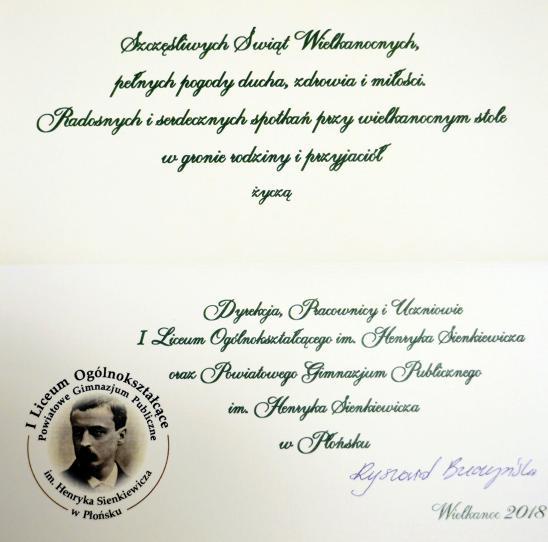 Szczęśliwych Świąt Wielkanocnych,
pełnych pogody ducha, zdrowia i miłości.
Radosnych i serdecznych spotkań przy wielkanocnym stole
w gronie rodziny i przyjaciół
życzą
Dyrekcja, Pracownicy i Uczniowie
I Liceum Ogólnokształcącego im. Henryka Sienkiewicza
oraz Powiatowego Gimnazjum Publicznego
im. Henryka Sienkiewicza
w Płońsku
I Liceum Ogólnokształcące
Powiatowe Gimnazjum Publiczne
im. Henryka Sienkiewicza
w Płońsku
Ryszard
Wielkanoc 2018